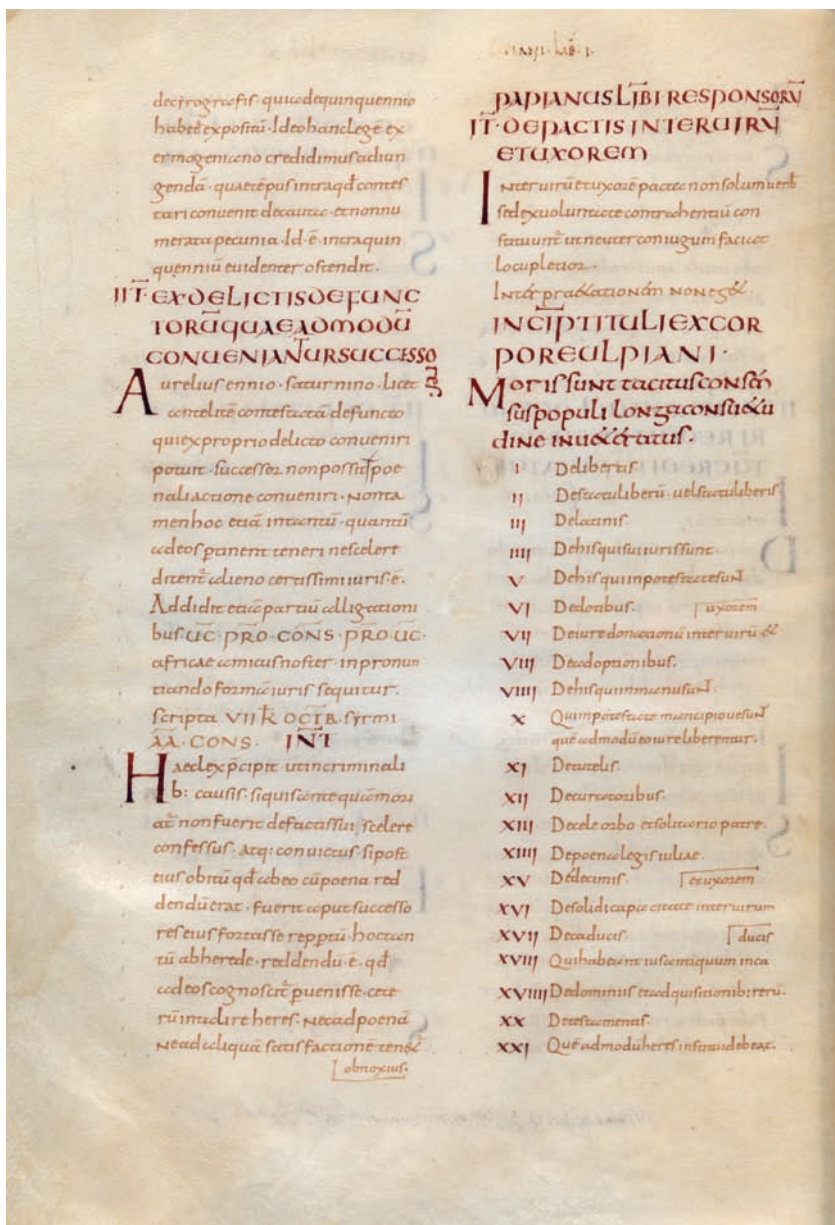 decirografis· quiadequinquennio
haberexpositū·Ideohanclegē ex
ermogeniano credidimusadiun
gendā· quaetēpus intraqđ contes
tari convenit decauta· etnonnu
merata pecunia·Id·ē·intraquin
quenniū evidenter ostendit·
IIT·EXDELICTISDEFUNC
TORŪQUAEADMODŪ
CONVENIANTURSUCCESSO
Aurelius ennio·saturnino·licet
antelitē contestatā defuncto
quiexproprio delicto conveniri
potuit·successor non possit poe
nali actione conveniri·Nonta
men hoc etiā intantū·quantū
adeos
ditent alieno certissimi iuris·ē·
Addidit etiā partiū alligationi
bus·UC·PRO·CONS·PRO·UC·
africae amicus noster inpronun
tiando formā iuris sequitur·
scripta VII k̄ OCTB·syrmi
AA·CONS· INT
Haec lex p̄cipit·utincriminali
b: causis·siquis antequā mori
at̄ non fuerit defactis sui scelere
confessus·atq: convictus·sipost
eius obitū qđ abeo cūpoena red
dendū erat·fuerit aput successo
res eius fortasse reppertū·hoc tan
tū abherede·reddendū·ē·qđ
adeos cognoscit̄ pvenisse·cete
rū intali re heres·Necad poenā
Nead aliquā satisfactionē teneat̄
obnoxius·
LIB·I·
PAPIANUS LIBI RESPONSORŪ
IT·DEPACTIS INTERUIRŪ
ETUXOREM
Interuirū etuxorē pacta non solum verb
sed exvoluntate contrahentiū con
stituunt̄ utneuter coniugum faciat
locupletior·
Interpraetationem non eget·
INCIP TITULI EXCOR
PORE ULPIANI·
Moris sunt tacitus consen
sus populi longa consuetu
dine inveteratus·
I Delibertis·
II Destatuliberū·velstatuliberis
III Delatinis·
IIII Dehisquisuiiurissunt·
V Dehisquiinpotestatesunt
VI Dedotibus·
uxorem
VII Deiure donationū interuirū et
VIII Deadoptionibus·
VIIII Dehisquiinmanusunt·
X Quiinpotestate mancipiovesunt
quēadmodū eoiure liberentur·
XI Detutelis·
XII Decuratoribus·
XIII Decele orbo etsolitario patre·
XIIII Depoena legis iuliae·
XV Dedecimis·
etuxorem
XVI Desolidi capacitate interuirum
XVII Decaducis·
ducis
XVIII Quihabeant ius antiquum inca
XVIIII Dedominiis etadquisitionib: rerū·
XX Detestamentis·
XXI Quēadmodū heres institui debeat·